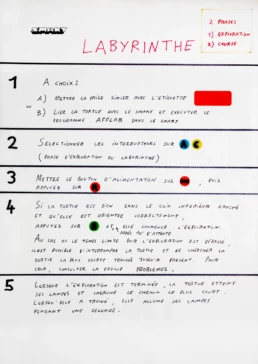 SMARY
LABYRINTHE
2 PHASES
1) EXPLORATION
2) COURSE
1 A CHOIX:
A) METTRE LA PILE SIMPLE AVEC L'ETIQUETTE
OU
B) LIER LA TORTUE AVEC LE SMAKY ET EXECUTER LE
PROGRAMME AFFLAB DANS LE SMAKY
2 SELECTIONNER LES INTERRUPTEURS SUR A C
(PHASE D'EXPLORATION DU LABYRINTHE)
3 METTRE LE BOUTON D'ALIMENTATION SUR , PUIS
APPUYEZ SUR
4 SI LA TORTUE EST BIEN DANS LE COIN INFERIEUR GAUCHE
ET QU'ELLE EST ORIENTEE CORRECTEMENT,
APPUYEZ SUR B ET, ELLE COMMENCE L'EXPLORATION.
AU CAS OU LE TEMPS LIMITE POUR L'EXPLORATION EST DEPASSE,
IL EST POSSIBLE D'INTERROMPRE LA TORTUE ET DE CHERCHER LA
SORTIE LA PLUS COURTE TROUVEE JUSQU'A PRESENT. POUR
CELA, CONSULTER LA FEUILLE PROBLEMES.
5 LORSQUE L'EXPLORATION EST TERMINEE, LA TORTUE ETEINT
SES LAMPES ET CHERCHE LE CHEMIN LE PLUS COURT.
LORSQU'ELLE A TROUVE, ELLE ALLUME SES LAMPES
PENDANT UNE SECONDE.